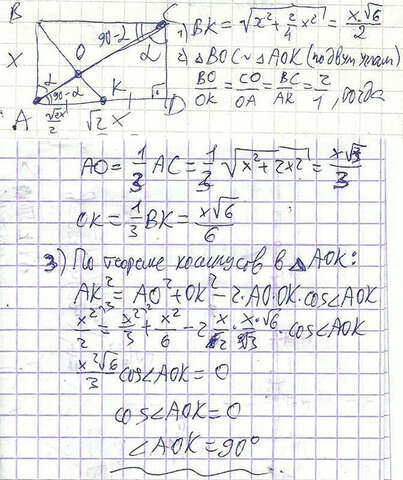 B
C
90-α
α
X
O
α
90-α
K
A
√2x/2
√2 X
D
1) BK = √(x² + 2/4 x²) = x·√6/2
2) △BOC ~ △AOK (по двум углам)
BO/OK = CO/OA = BC/AK = 2/1, тогда
AO = 1/3 AC = 1/3 √(x² + 2x²) = x√3/3
OK = 1/3 BK = x√6/6
3) По теореме косинусов в △AOK:
AK² = AO² + OK² - 2·AO·OK·cos∠AOK
x²/2 = x²/3 + x²/6 - 2 · x·√6 · cos∠AOK
x²√6/3 cos∠AOK = 0
cos∠AOK = 0
∠AOK = 90°